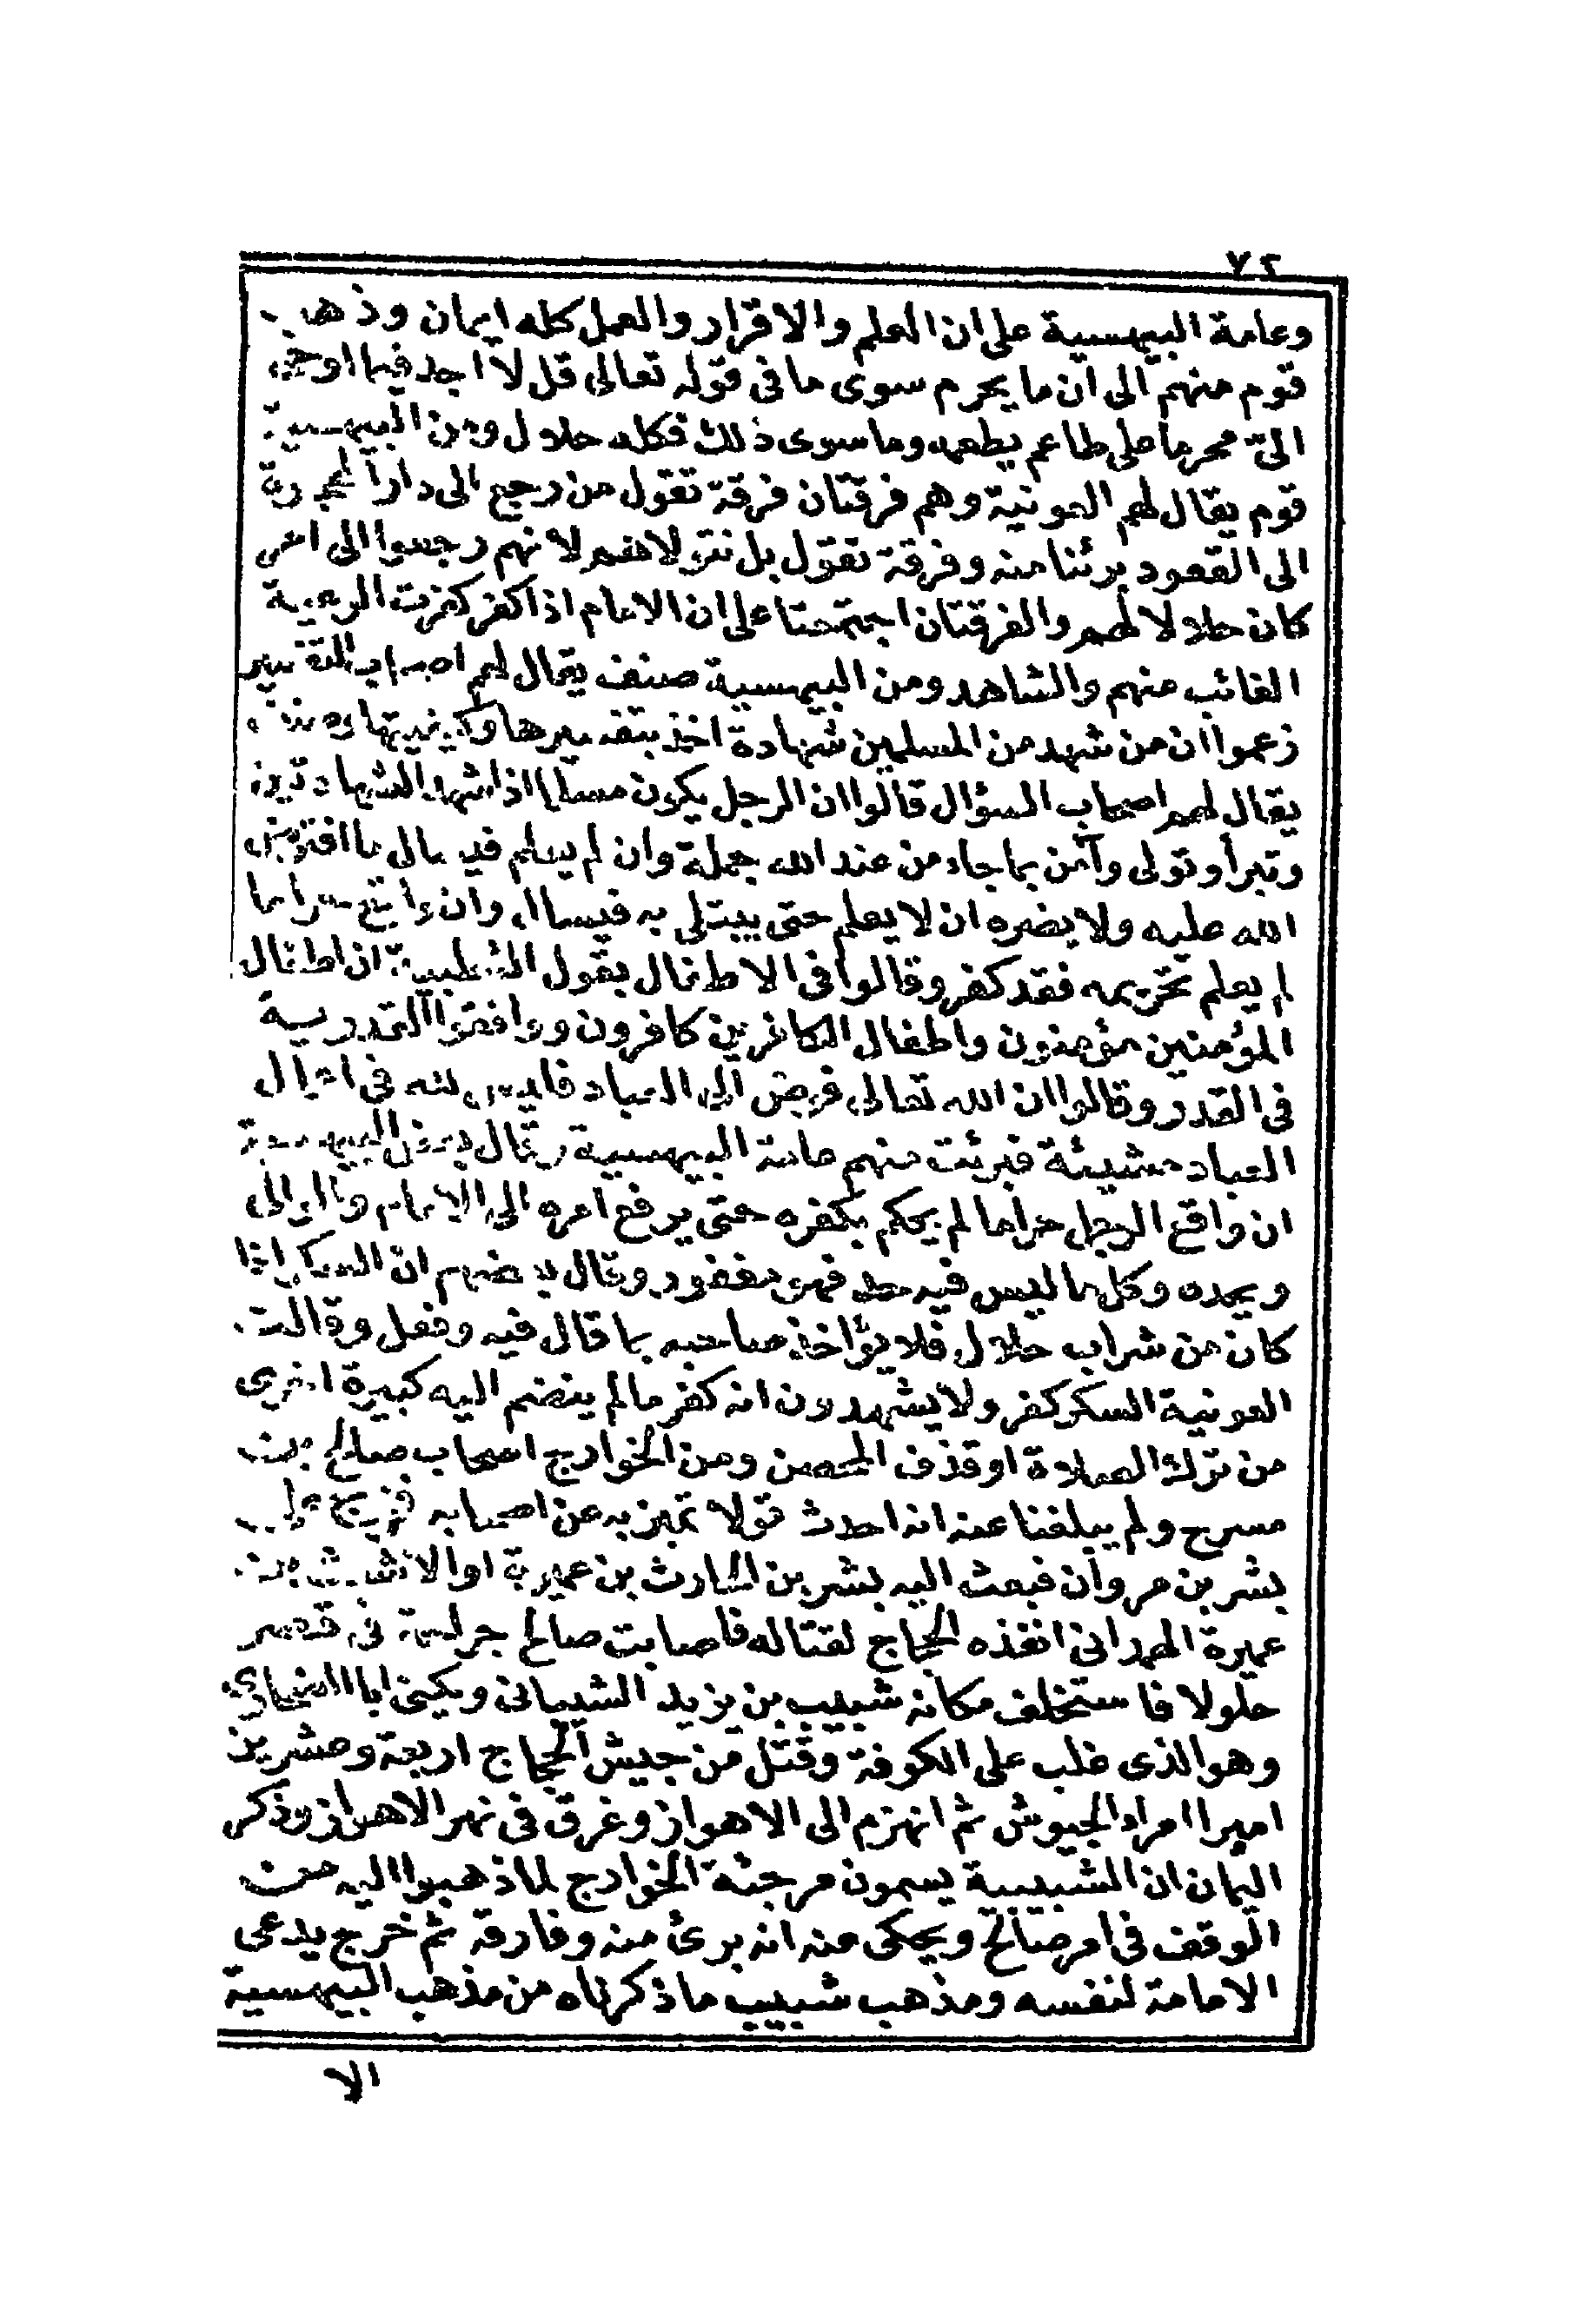 ٧٢
وعامة البيهسية على ان العلم والاقرار والعمل كله ايمان وذهب
قوم منهم الى ان ما يحرم سوى ما فى قوله تعالى قل لا اجد فيما اوحى
الىّ محرما على طاعم يطعمه وما سوى ذلك فكله حلال ومن البيهسية
قوم يقال لهم العونية وهم فرقتان فرقة تقول من رجع الى دار الهجرة
الى القعود برئنا منه وفرقة تقول بل نتولاهم لانهم رجعوا الى امر
كان حلالا لهم والفرقتان اجتمعتا على ان الامام اذا كفر كفرت الرعية
الغائب منهم والشاهد ومن البيهسية صنف يقال لهم اصحاب التفسير
زعموا ان من شهد من المسلمين شهادة اخذ بتفسيرها وكيفيتها وصنف
يقال لهم اصحاب السؤال قالوا ان الرجل يكون مسلما اذا شهد الشهادتين
وتبرأ وتولى وآمن بما جاء من عند الله جملة وان لم يعلم فيسأل ما افترض
الله عليه ولا يضره ان لا يعلم حتى يبتلى به فيسأل وان واقع حراما
لم يعلم تحريمه فقد كفر وقالوا فى الاطفال بقول الثعلبية ان اطفال
المؤمنين مؤمنون واطفال الكافرين كافرون ووافقوا القدرية
فى القدر وقالوا ان الله تعالى فوض الى العباد فليس لله فى اعمال
العباد مشيئة فبرئت منهم عامة البيهسية وقال بعض البيهسية
ان واقع الرجل حراما لم يحكم بكفره حتى يرفع امره الى الامام والوالى
ويحده وكل ما ليس فيه حد فهو مغفور وقال بعضهم ان السكر اذا
كان من شراب حلال فلا يؤاخذ صاحبه بما قال فيه وفعل وقالت
العونية السكر كفر ولا يشهدون انه كفر ما لم ينضم اليه كبيرة اخرى
من ترك الصلاة او قذف المحصن ومن الخوارج اصحاب صالح بن
مسرح ولم يبلغنا عنه انه احدث قولا تميز به عن اصحابه فخرج على
بشر بن مروان فبعث اليه بشر بن الحارث بن عميرة او الاشعث بن
عميرة الهمدانى انفذه الحجاج لقتاله فاصابت صالح جراحة فى قصر
حلولا فاستخلف مكانه شبيب بن يزيد الشيبانى ويكنى ابا الضحارى
وهو الذى غلب على الكوفة وقتل من جيش الحجاج اربعة وعشرين
اميرا امراء الجيوش ثم انهزم الى الاهواز وغرق فى نهر الاهواز وذكر
اليمان ان الشبيبية يسمون مرجئة الخوارج لما ذهبوا اليه من
الوقف فى امر صالح ويحكى عنه انه برئ منه وفارقه ثم خرج يدعى
الامامة لنفسه ومذهب شبيب ما ذكرناه من مذهب البيهسية
الا